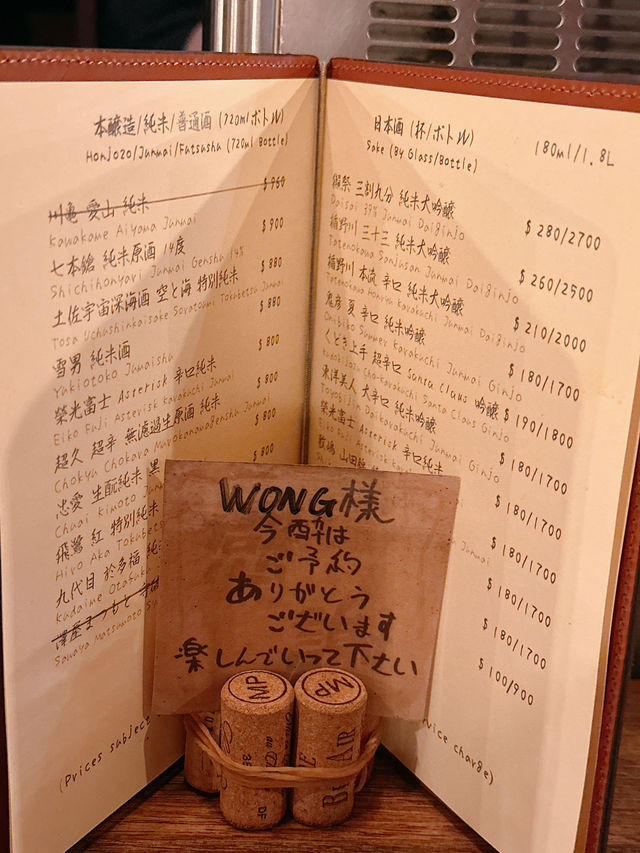 本醸造/純米/普通酒 (720ml/ボトル)
Honjozo/Junmai/Futsushu (720ml Bottle)
川亀 愛山 純米 $960
Kawakame Aiyama Junmai
七本鎗 純米原酒 14度 $900
Shichihonyari Junmai Genshu 14%
土佐宇宙深海酒 空と海 特別純米 $880
Tosa Uchushinkaisake Soratoumi Tokubetsu Junmai
雪男 純米酒 $880
Yukiotoko Junmaishu
榮光富士 Asterisk 辛口純米 $800
Eiko Fuji Asterisk Karakuchi Junmai
超久 超辛 無濾過生原酒 純米 $800
Chokyu Chokara Murokanamagenshu Junmai
忠愛 生酛純米 黒 $800
Chuai Kimoto Jun
飛鸞 紅 特別純米 $800
Hiro Aka Tokubets
九代目 於多福 純
Kudaime Otafuku
澤屋まつもと 守
Sawaya Matsumoto
(Prices subject
日本酒 (杯/ボトル)
Sake (By Glass/Bottle)
180ml/1.8L
獺祭 三割九分 純米大吟醸
Dassai 39% Junmai Daiginjo
$280/2700
楯野川 三十三 純米大吟醸
Tatenokawa Sanjusan Junmai Daiginjo
$260/2500
楯野川 本流 辛口 純米大吟醸
Tatenokawa Honryu Karakuchi Junmai Daiginjo
$210/2000
鬼彦 夏 辛口 純米吟醸
Onibiko Summer Karakuchi Junmai Ginjo
$180/1700
くどき上手 超辛口 Santa Claus 吟醸
Kudokijozu Cho-Karakuchi Santa Claus Ginjo
$190/1800
東洋美人 大辛口 純米吟醸
Toyobijin Daikarakuchi Junmai Ginjo
$180/1700
榮光富士 Asterisk 辛口純米
Eiko Fuji Asterisk
$180/1700
Junmai
$180/1700
$180/1700
$180/1700
$100/900
vice charge)
WONG様
今酔は
ご予約
ありがとう
ございます
楽しんでいって下さい
MP
MP
DF
BEL AIR